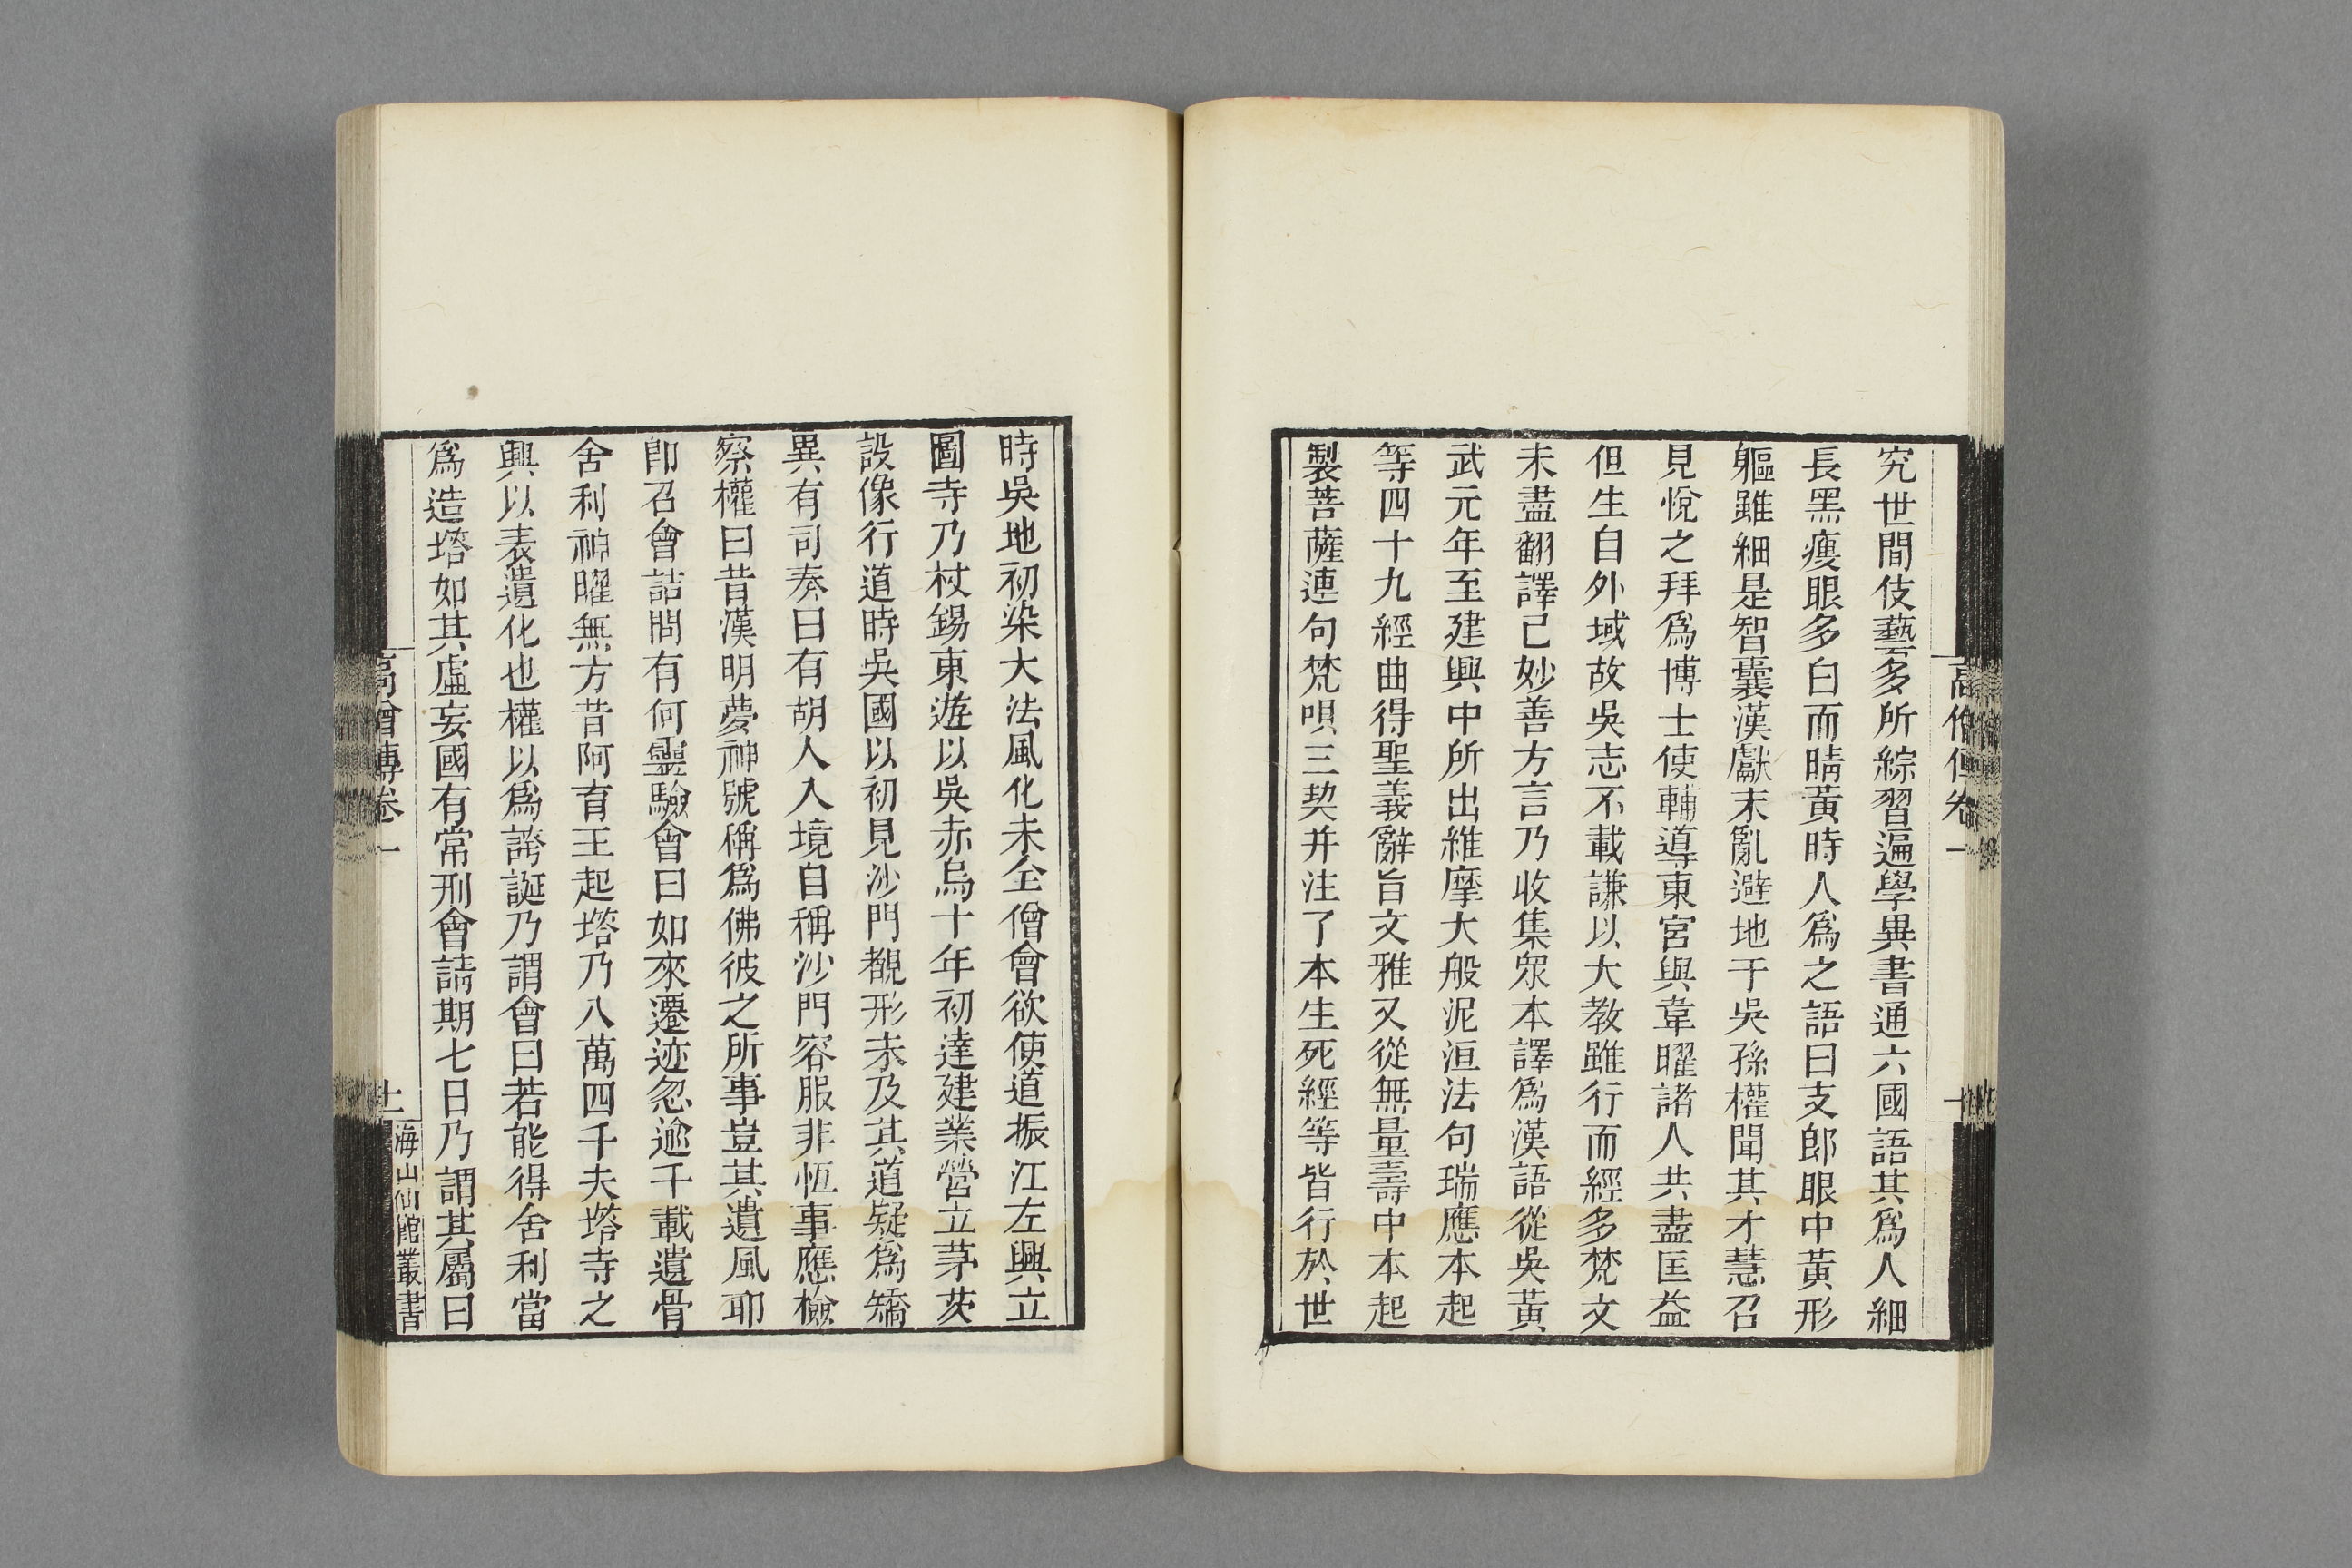 高僧傳卷一
究世間伎藝多所綜習遍學異書通六國語其爲人細
長黑瘦眼多白而睛黃時人爲之語曰支郎眼中黃形
軀雖細是智囊漢獻末亂避地于吳孫權聞其才慧召
見悅之拜爲博士使輔導東宮與韋曜諸人共盡匡益
但生自外域故吳志不載謙以大教雖行而經多梵文
未盡翻譯已妙善方言乃收集眾本譯爲漢語從吳黃
武元年至建興中所出維摩大般泥洹法句瑞應本起
等四十九經曲得聖義辭旨文雅又從無量壽中本起
製菩薩連句梵唄三契并注了本生死經等皆行於世
時吳地初染大法風化未全僧會欲使道振江左興立
圖寺乃杖錫東遊以吳赤烏十年初達建業營立茅茨
設像行道時吳國以初見沙門覩形未及其道疑爲矯
異有司奏曰有胡人入境自稱沙門容服非恆事應檢
察權曰昔漢明夢神號稱爲佛彼之所事豈其遺風耶
卽召會詰問有何靈驗會曰如來遷迹忽逾千載遺骨
舍利神曜無方昔阿育王起塔乃八萬四千夫塔寺之
興以表遺化也權以爲誇誕乃謂會曰若能得舍利當
爲造塔如其虛妄國有常刑會請期七日乃謂其屬曰
高僧傳卷一
十一
海山仙館叢書